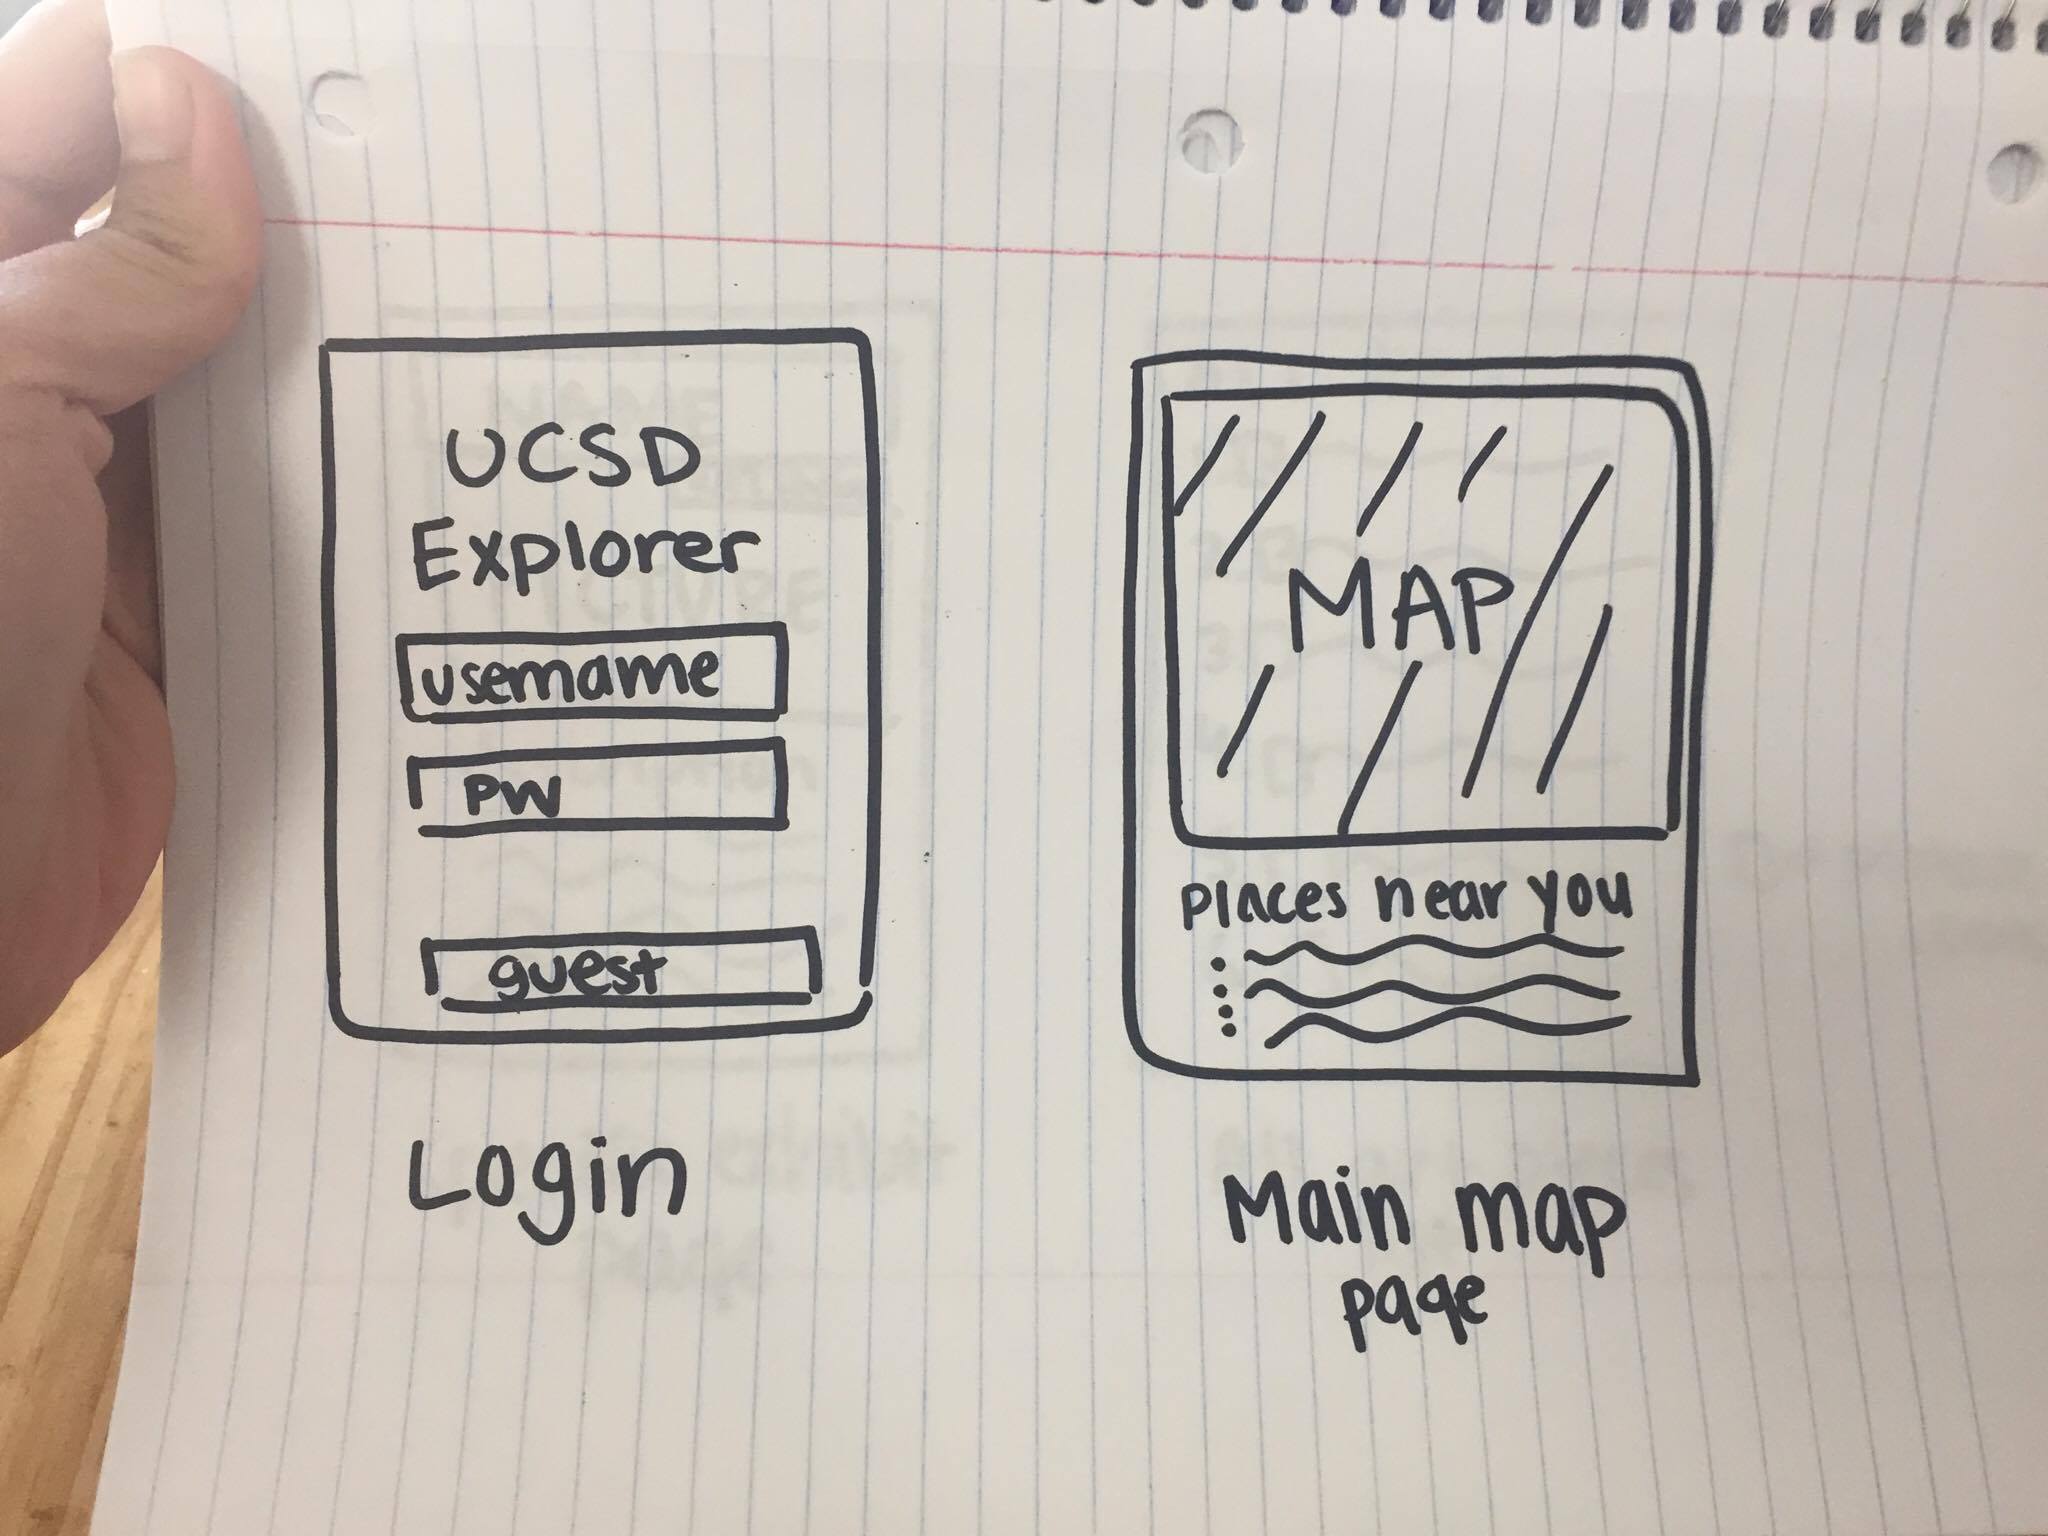 UCSD
Explorer
username
pw
guest
Login
MAP
places near you
Main map
page